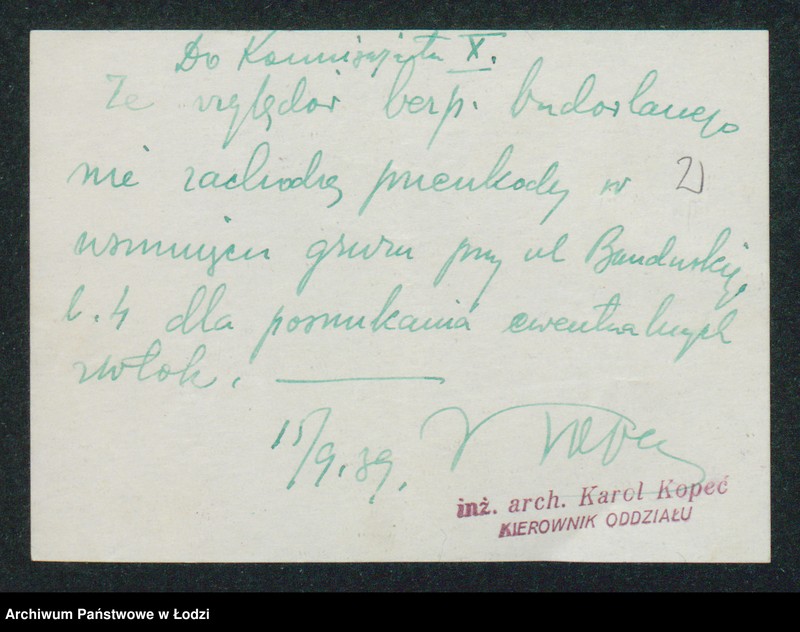 Do Komisarjatu X.
Ze względów bezp. budowlanego
nie zachodzą przeszkody w 2)
usunięciu gruzu przy ul Bandurskiego
l. 4 dla poszukania ewentualnych
zwłok. —
15/9.39.
inż. arch. Karol Kopeć
KIEROWNIK ODDZIAŁU
Archiwum Państwowe w Łodzi